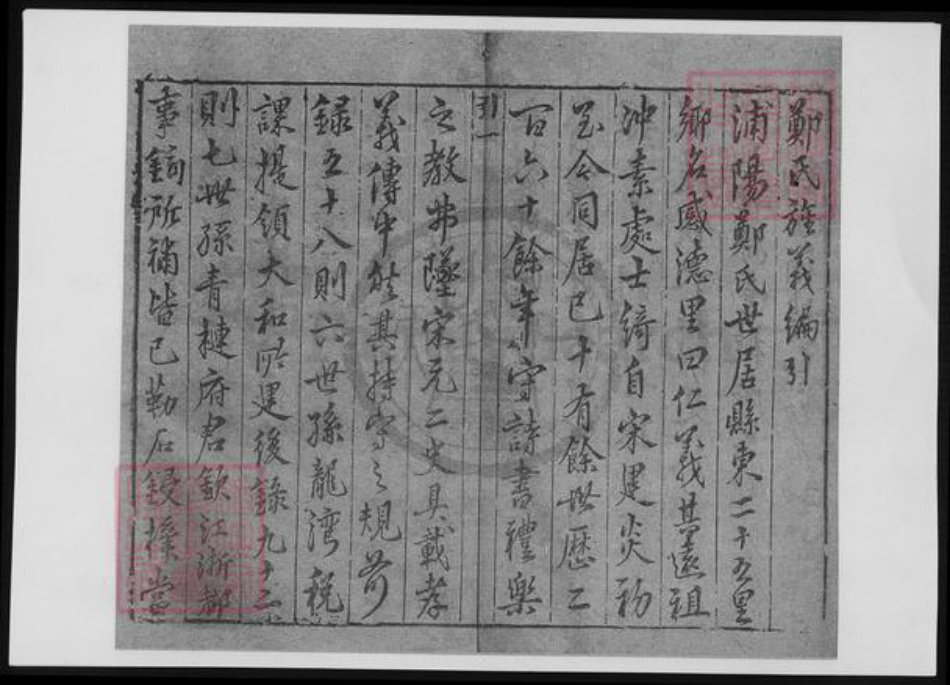 鄭氏旌義編引
浦陽鄭氏世居縣東二十五里
鄉名感德里曰仁義其遠祖
沖素處士綺自宋建炎初
至今同居已十有餘世歷二
百六十餘年守詩書禮樂
引一
之教弗墜宋元二史具載孝
義傳中然其持守之規前
錄五十八則六世孫龍灣稅
課提領大和所建後錄九十二
則七世孫青槤府君欽江浙都
事鉉所補皆已勒石鋟梓嘗